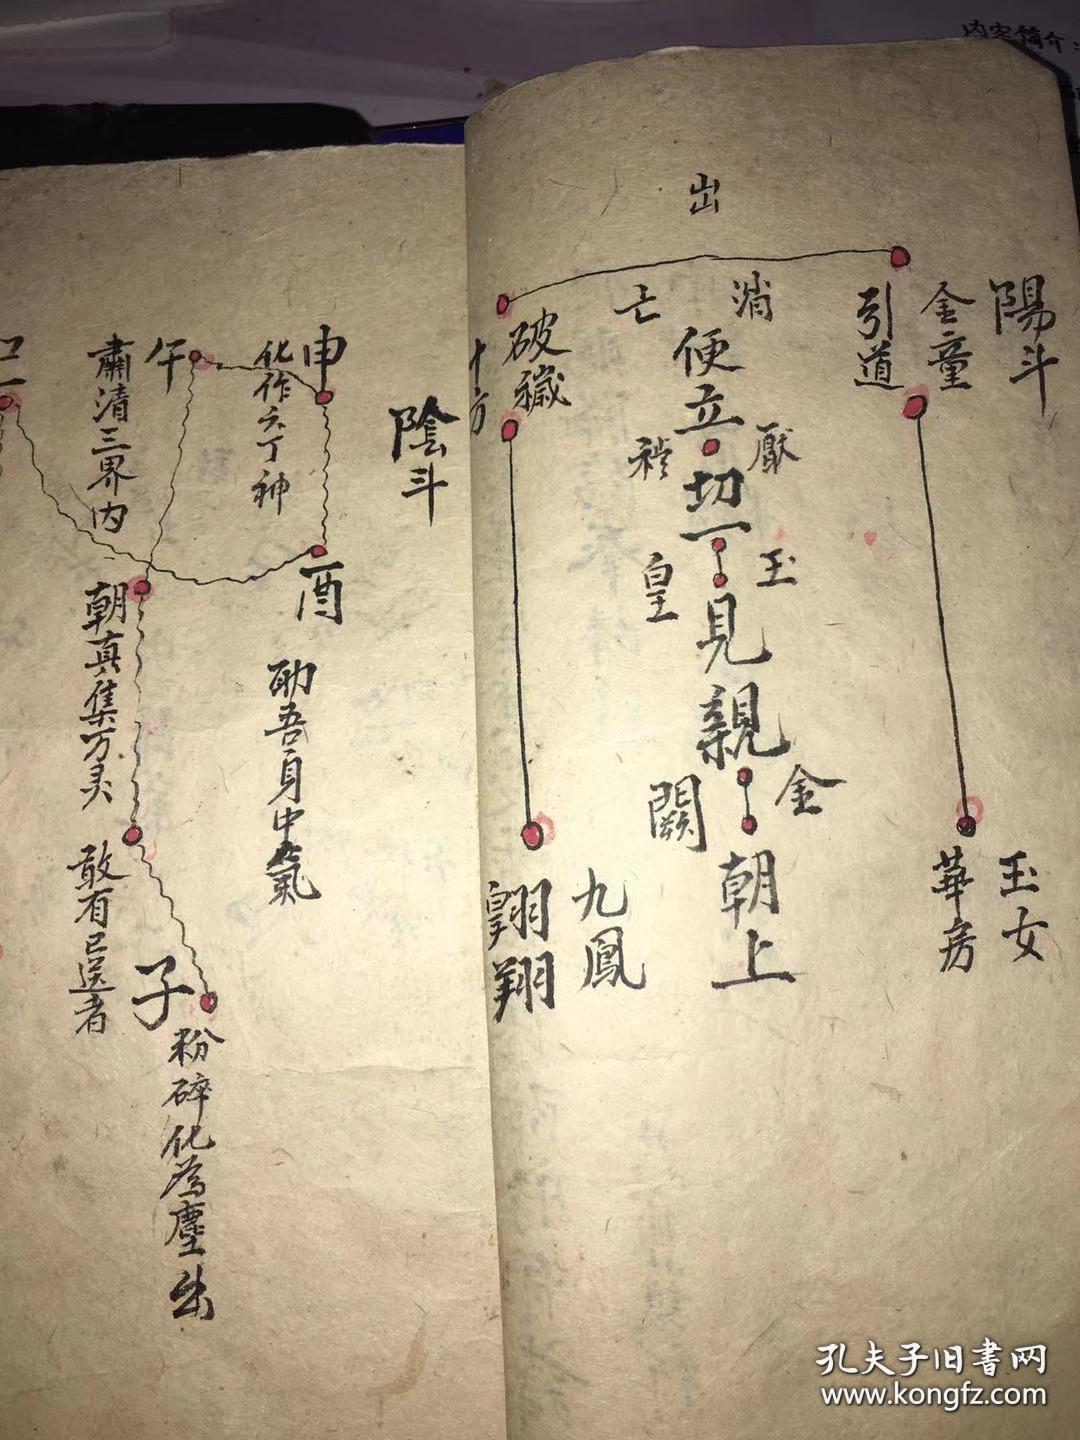 内容簡介：
陽斗
金童
引道
玉女
華房
出
消
亡
便立
厭
穢
切一
玉
皇
見親
金
闕
朝上
破穢
十方
九鳳
翱翔
陰斗
申
酉
化作六丁神
助吾身中氣
午
子
肅清三界內
朝真集万灵
敢有已送者
粉碎化為塵出
孔夫子旧書网
www.kongfz.com